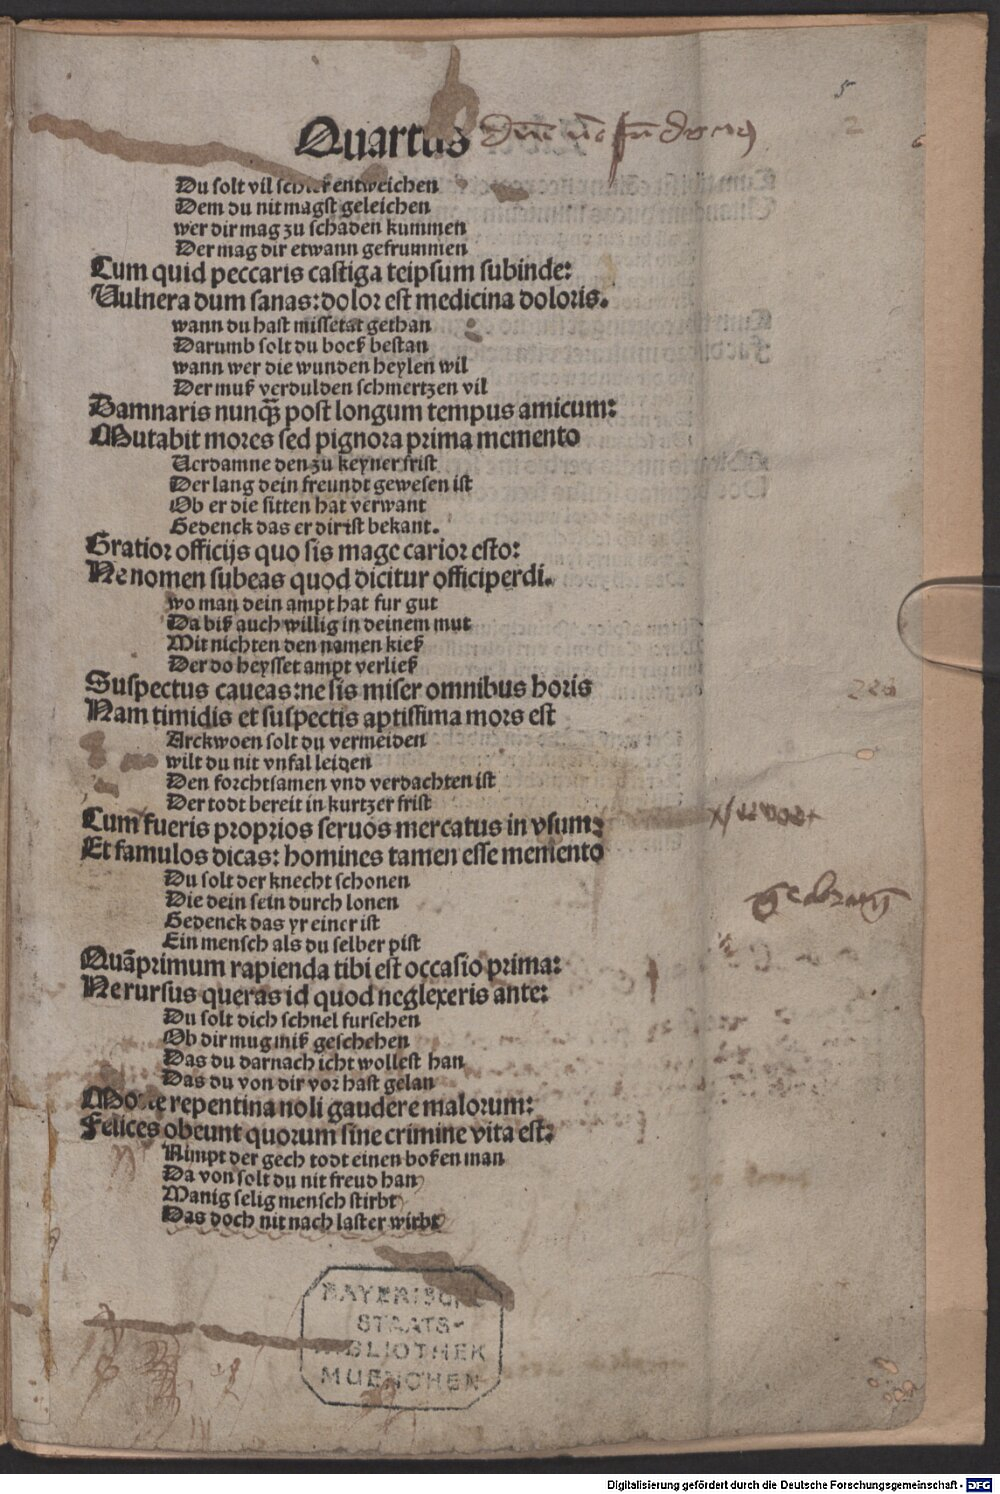 5
2
Quartus
Du solt vil schier entweichen
Dem du nit magst geleichen
wer dir mag zu schaden kummen
Der mag dir etwann gefrummen
Cum quid peccaris castiga teipsum subinde:
Vulnera dum sanas: dolor est medicina doloris.
wann du hast missetat gethan
Darumb solt du boeß bestan
wann wer die wunden heylen wil
Der muß verdulden schmertzen vil
Damnaris nunq̄ post longum tempus amicum:
Mutabit mores sed pignora prima memento
Verdamne den zu keyner frist
Der lang dein freundt gewesen ist
Ob er die sitten hat verwant
Gedenck das er dir ist bekant.
Gratior officijs quo sis mage carior esto:
Ne nomen subeas quod dicitur officiperdi.
wo man dein ampt hat fur gut
Da biß auch willig in deinem mut
Mit nichten den namen kieß
Der do heysset ampt verließ
Suspectus caueas: ne sis miser omnibus horis
Nam timidis et suspectis aptissima mors est
Arckwoen solt du vermeiden
wilt du nit vnfal leiden
Den forchtsamen vnd verdachten ist
Der todt bereit in kurtzer frist
Cum fueris proprios seruos mercatus in vsum:
Et famulos dicas: homines tamen esse memento
Du solt der knecht schonen
Die dein sein durch lonen
Gedenck das yr einer ist
Ein mensch als du selber pist
Quāprimum rapienda tibi est occasio prima:
Ne rursus queras id quod neglexeris ante:
Du solt dich schnel fursehen
Ob dir mug miß geschehen
Das du darnach icht wollest han
Das du von dir vor hast gelan
Morte repentina noli gaudere malorum:
Felices obeunt quorum sine crimine vita est:
Nimpt der gech todt einen boßen man
Da von solt du nit freud han
Manig selig mensch stirbt
Das doch nit nach laster wirbt
BAYERISCHE
STAATS-
BIBLIOTHEK
MUENCHEN
Digitalisierung gefördert durch die Deutsche Forschungsgemeinschaft - DFG